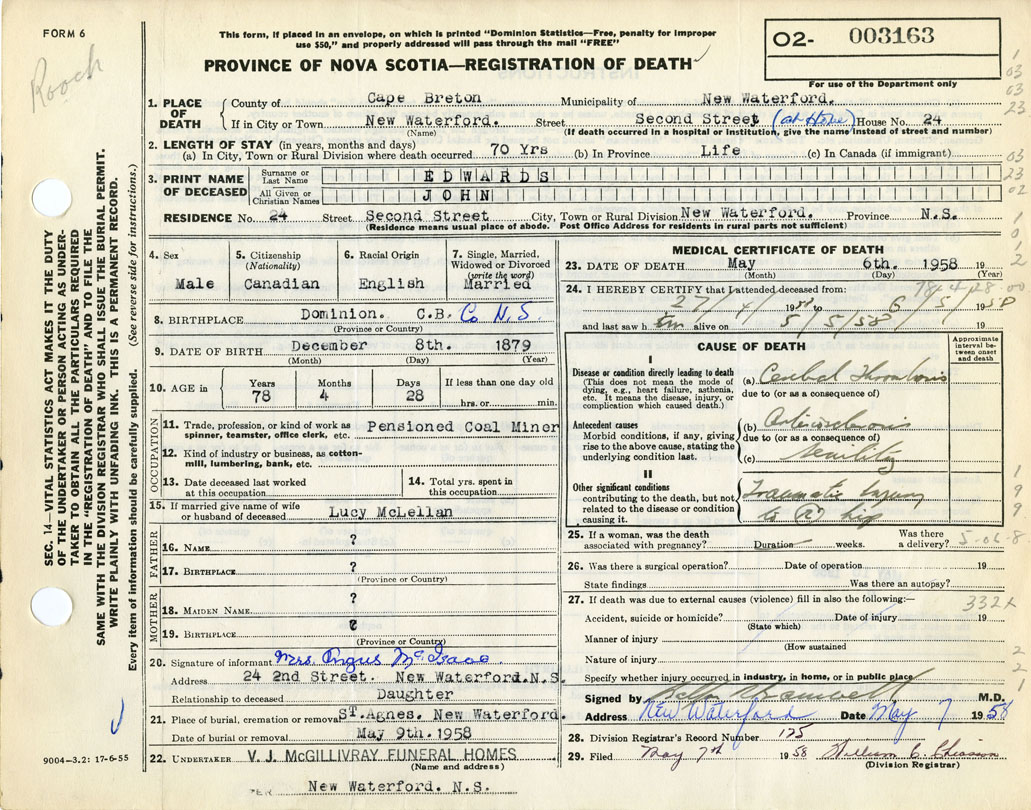 FORM 6
This form, if placed in an envelope, on which is printed "Dominion Statistics—Free, penalty for improper
use $50," and properly addressed will pass through the mail "FREE"
PROVINCE OF NOVA SCOTIA—REGISTRATION OF DEATH
O2- 003163
For use of the Department only
Rooch
1. PLACE OF DEATH
County of Cape Breton Municipality of New Waterford.
If in City or Town New Waterford. Street Second Street (at Home) House No. 24
(Name) (If death occurred in a hospital or institution, give the name instead of street and number)
2. LENGTH OF STAY (in years, months and days)
(a) In City, Town or Rural Division where death occurred 70 Yrs (b) In Province Life (c) In Canada (if immigrant)
3. PRINT NAME OF DECEASED
Surname or Last Name EDWARDS
All Given or Christian Names JOHN
RESIDENCE No. 24 Street Second Street City, Town or Rural Division New Waterford. Province N.S.
(Residence means usual place of abode. Post Office Address for residents in rural parts not sufficient)
4. Sex
Male
5. Citizenship (Nationality)
Canadian
6. Racial Origin
English
7. Single, Married, Widowed or Divorced (write the word)
Married
8. BIRTHPLACE Dominion. C.B. Co N.S.
(Province or Country)
9. DATE OF BIRTH December 8th. 1879
(Month) (Day) (Year)
10. AGE in Years Months Days If less than one day old
78 4 28 hrs. or min.
OCCUPATION
11. Trade, profession, or kind of work as
spinner, teamster, office clerk, etc. Pensioned Coal Miner
12. Kind of industry or business, as cotton-
mill, lumbering, bank, etc.
13. Date deceased last worked
at this occupation
14. Total yrs. spent in
this occupation
15. If married give name of wife
or husband of deceased Lucy McLellan
FATHER
16. NAME ?
17. BIRTHPLACE ?
(Province or Country)
MOTHER
18. MAIDEN NAME ?
19. BIRTHPLACE ?
(Province or Country)
20. Signature of informant Mrs. Angus McIsaac
Address 24 2nd Street. New Waterford.N.S.
Relationship to deceased Daughter
21. Place of burial, cremation or removal St.Agnes. New Waterford.
Date of burial or removal May 9th.1958
22. UNDERTAKER V. J. McGILLIVRAY FUNERAL HOMES
(Name and address)
PER New Waterford. N.S.
MEDICAL CERTIFICATE OF DEATH
23. DATE OF DEATH May 6th. 1958 19
(Month) (Day) (Year)
78-4-28-00
24. I HEREBY CERTIFY that I attended deceased from:
27/4/1958 to 6/5/58
and last saw him alive on 5/5/58 19
CAUSE OF DEATH
Approximate interval be-tween onset and death
I
Disease or condition directly leading to death
(This does not mean the mode of
dying, e.g., heart failure, asthenia,
etc. It means the disease, injury, or
complication which caused death.)
(a) Cerebral Thrombosis
due to (or as a consequence of)
Antecedent causes
Morbid conditions, if any, giving
rise to the above cause, stating the
underlying condition last.
(b) Arteriosclerosis
due to (or as a consequence of)
(c) Senility
II
Other significant conditions
contributing to the death, but not
related to the disease or condition
causing it.
Traumatic Injury
to (R) hip
25. If a woman, was the death
associated with pregnancy? Duration weeks. Was there
a delivery?
5-06-8
26. Was there a surgical operation? Date of operation 19
State findings Was there an autopsy?
27. If death was due to external causes (violence) fill in also the following:—
332X
Accident, suicide or homicide? Date of injury 19
(State which)
Manner of injury
(How sustained
Nature of injury
Specify whether injury occurred in industry, in home, or in public place
Signed by M.D.
Address New Waterford Date May 7 1958
28. Division Registrar's Record Number 175
29. Filed May 7th 1958 William C. Chiasson
(Division Registrar)
1
03
03
23
03
23
02
1
0
1
2
1
9
9
2
2
1
SEC. 14—VITAL STATISTICS ACT MAKES IT THE DUTY
OF THE UNDERTAKER OR PERSON ACTING AS UNDER-
TAKER TO OBTAIN ALL THE PARTICULARS REQUIRED
IN THE "REGISTRATION OF DEATH" AND TO FILE THE
SAME WITH THE DIVISION REGISTRAR WHO SHALL ISSUE THE BURIAL PERMIT.
WRITE PLAINLY WITH UNFADING INK. THIS IS A PERMANENT RECORD.
Every item of information should be carefully supplied. (See reverse side for instructions.)
9004-3.2: 17-6-55